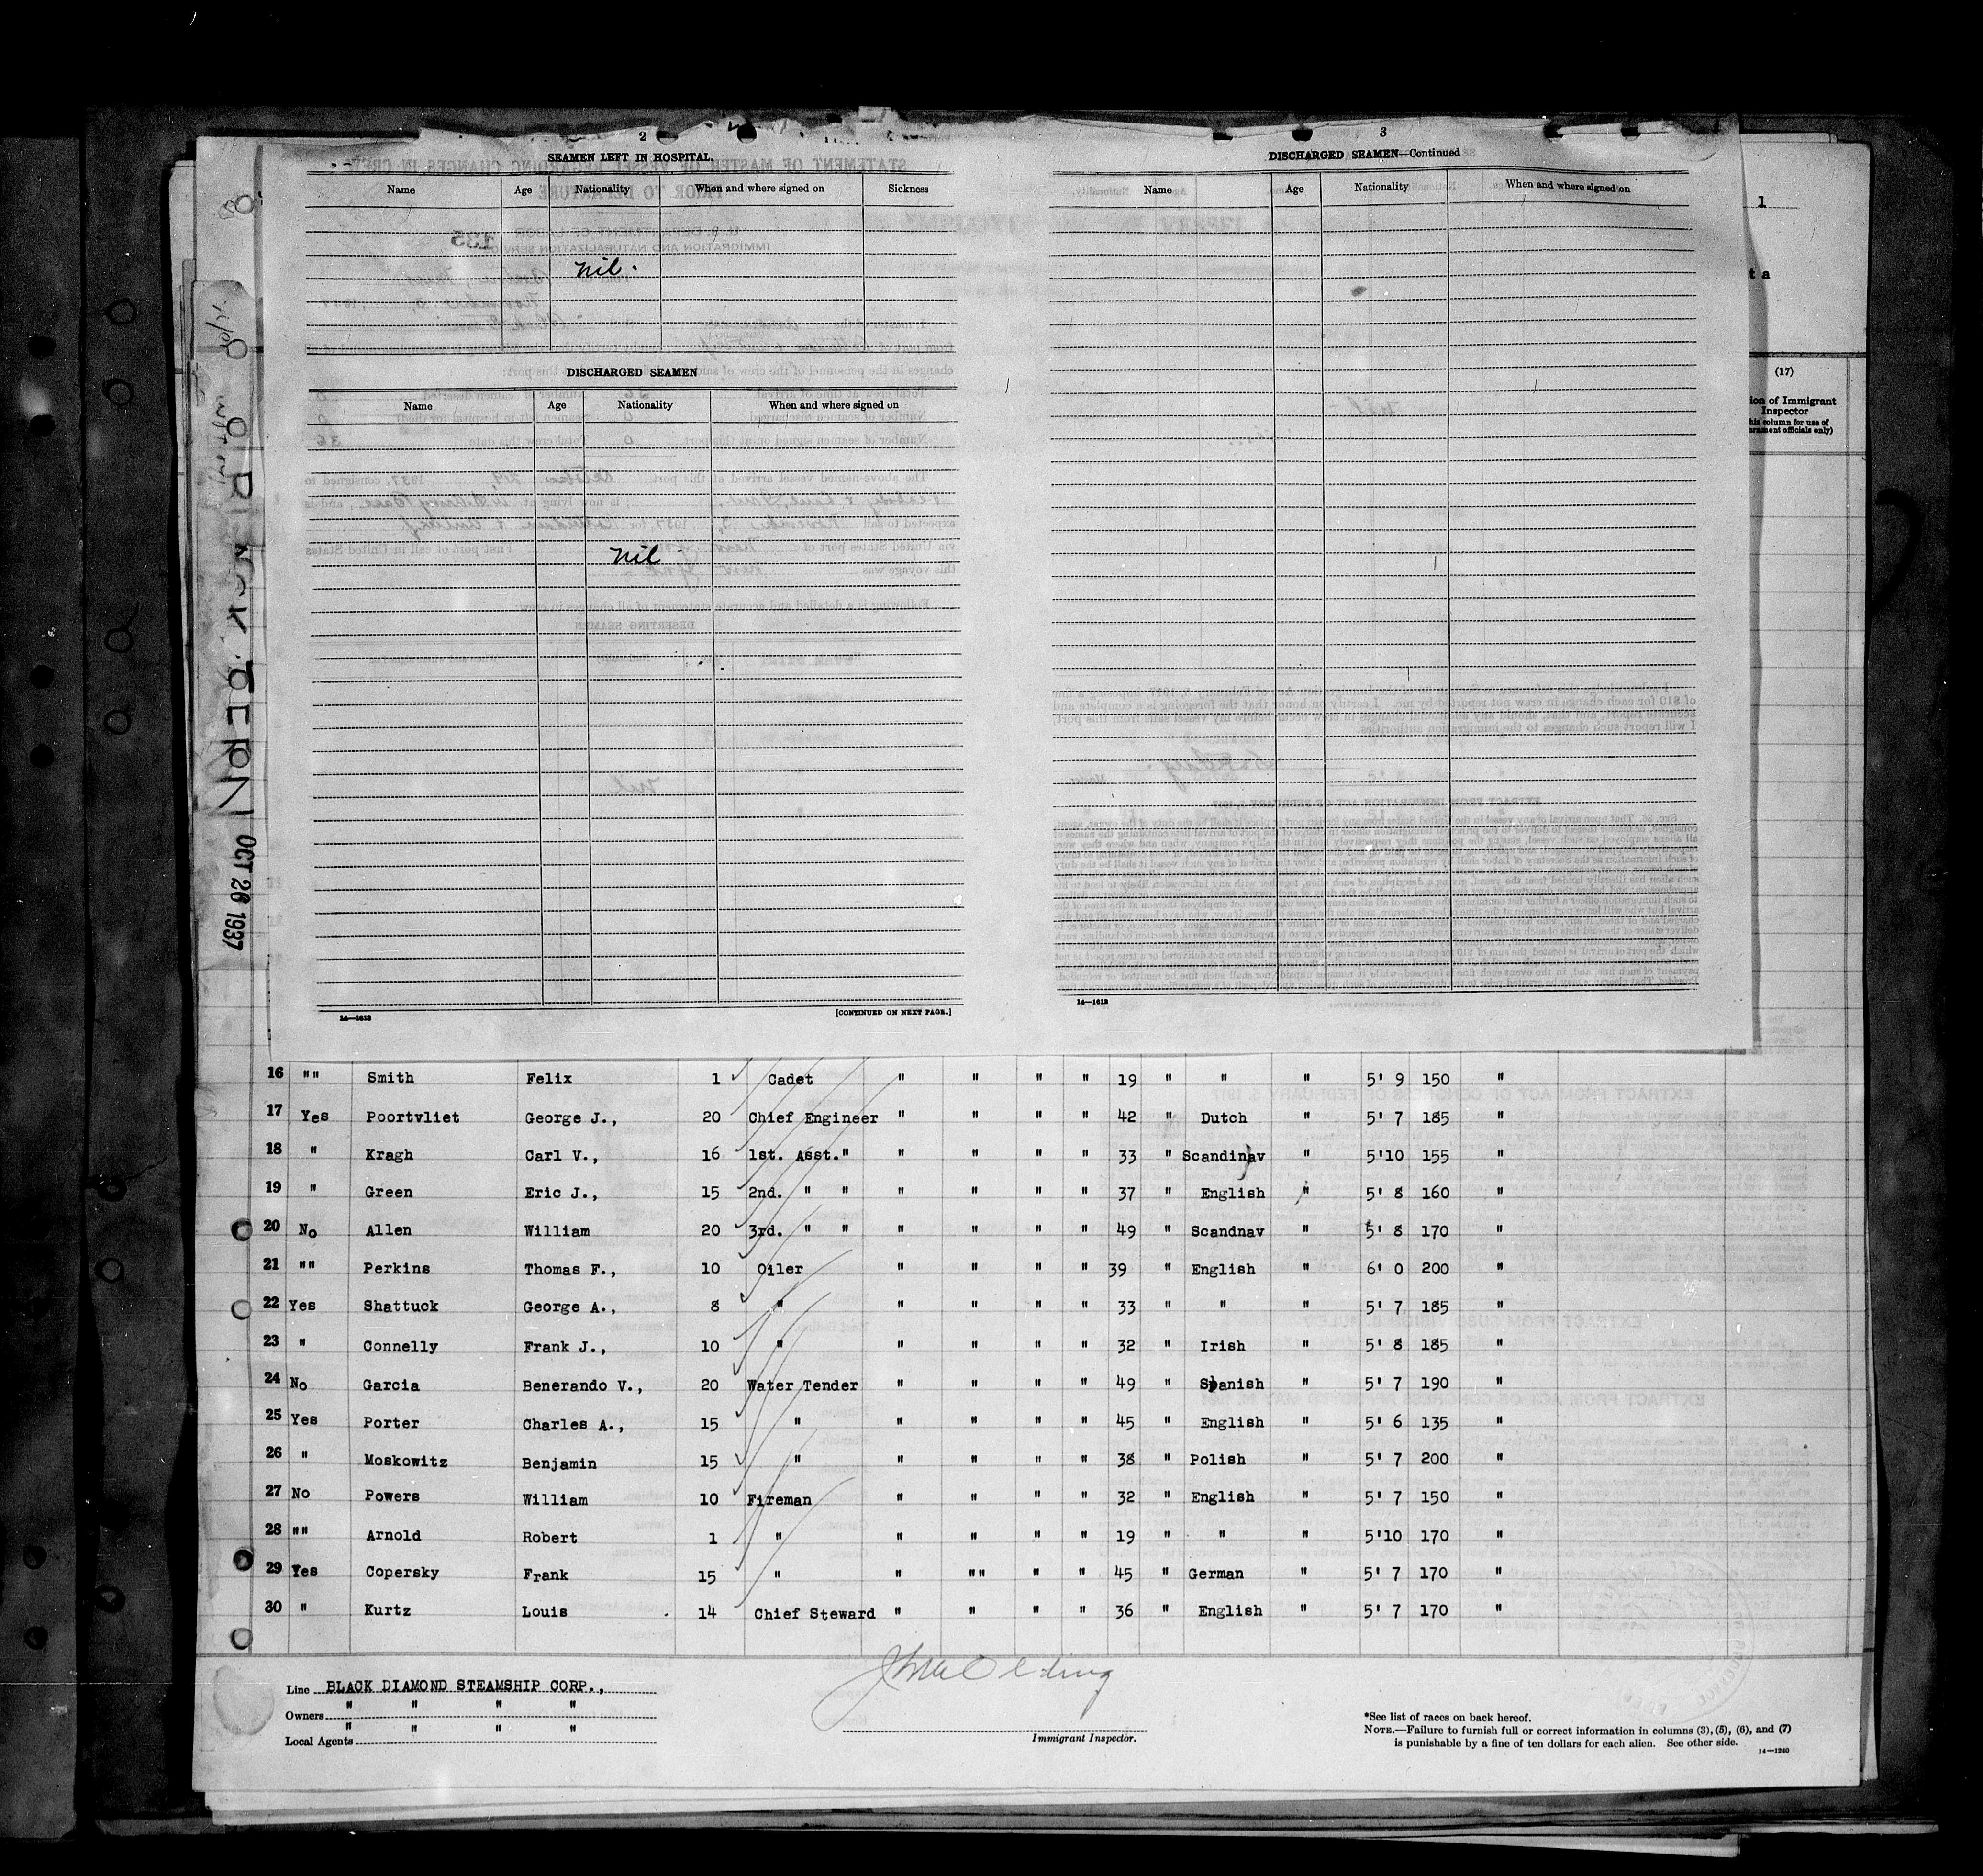 2
SEAMEN LEFT IN HOSPITAL.
Name Age Nationality When and where signed on Sickness
Nil.
DISCHARGED SEAMEN
Name Age Nationality When and where signed on
Nil
14—1613 [CONTINUED ON NEXT PAGE.]
3
DISCHARGED SEAMEN—Continued
Name Age Nationality When and where signed on
14—1613
1
ta
(17)
ion of Immigrant
Inspector
his column for use of
ernment officials only)
OCT 26 1937
16 "" Smith Felix 1 Cadet " " " " 19 " " " 5' 9 150 "
17 Yes Poortvliet George J., 20 Chief Engineer " " " " 42 " Dutch " 5' 7 185 "
18 " Kragh Carl V., 16 1st. Asst." " " " " 33 " Scandinav " 5'10 155 "
19 " Green Eric J., 15 2nd. " " " " " " 37 " English " 5' 8 160 "
20 No Allen William 20 3rd. " " " " " " 49 " Scandnav " 5' 8 170 "
21 "" Perkins Thomas F., 10 Oiler " " " " 39 " English " 6' 0 200 "
22 Yes Shattuck George A., 8 " " " " " 33 " " " 5' 7 185 "
23 " Connelly Frank J., 10 " " " " " 32 " Irish " 5' 8 185 "
24 No Garcia Benerando V., 20 Water Tender " " " " 49 " Spanish " 5' 7 190 "
25 Yes Porter Charles A., 15 " " " " " 45 " English " 5' 6 135 "
26 " Moskowitz Benjamin 15 " " " " " 38 " Polish " 5' 7 200 "
27 No Powers William 10 Fireman " " " " 32 " English " 5' 7 150 "
28 "" Arnold Robert 1 " " " " " 19 " " " 5'10 170 "
29 Yes Copersky Frank 15 " " "" " " 45 " German " 5' 7 170 "
30 " Kurtz Louis 14 Chief Steward " " " " 36 " English " 5' 7 170 "
Line BLACK DIAMOND STEAMSHIP CORP.,
Owners " " " "
Local Agents " " " "
Immigrant Inspector.
*See list of races on back hereof.
NOTE.—Failure to furnish full or correct information in columns (3), (5), (6), and (7)
is punishable by a fine of ten dollars for each alien. See other side.
14—1240